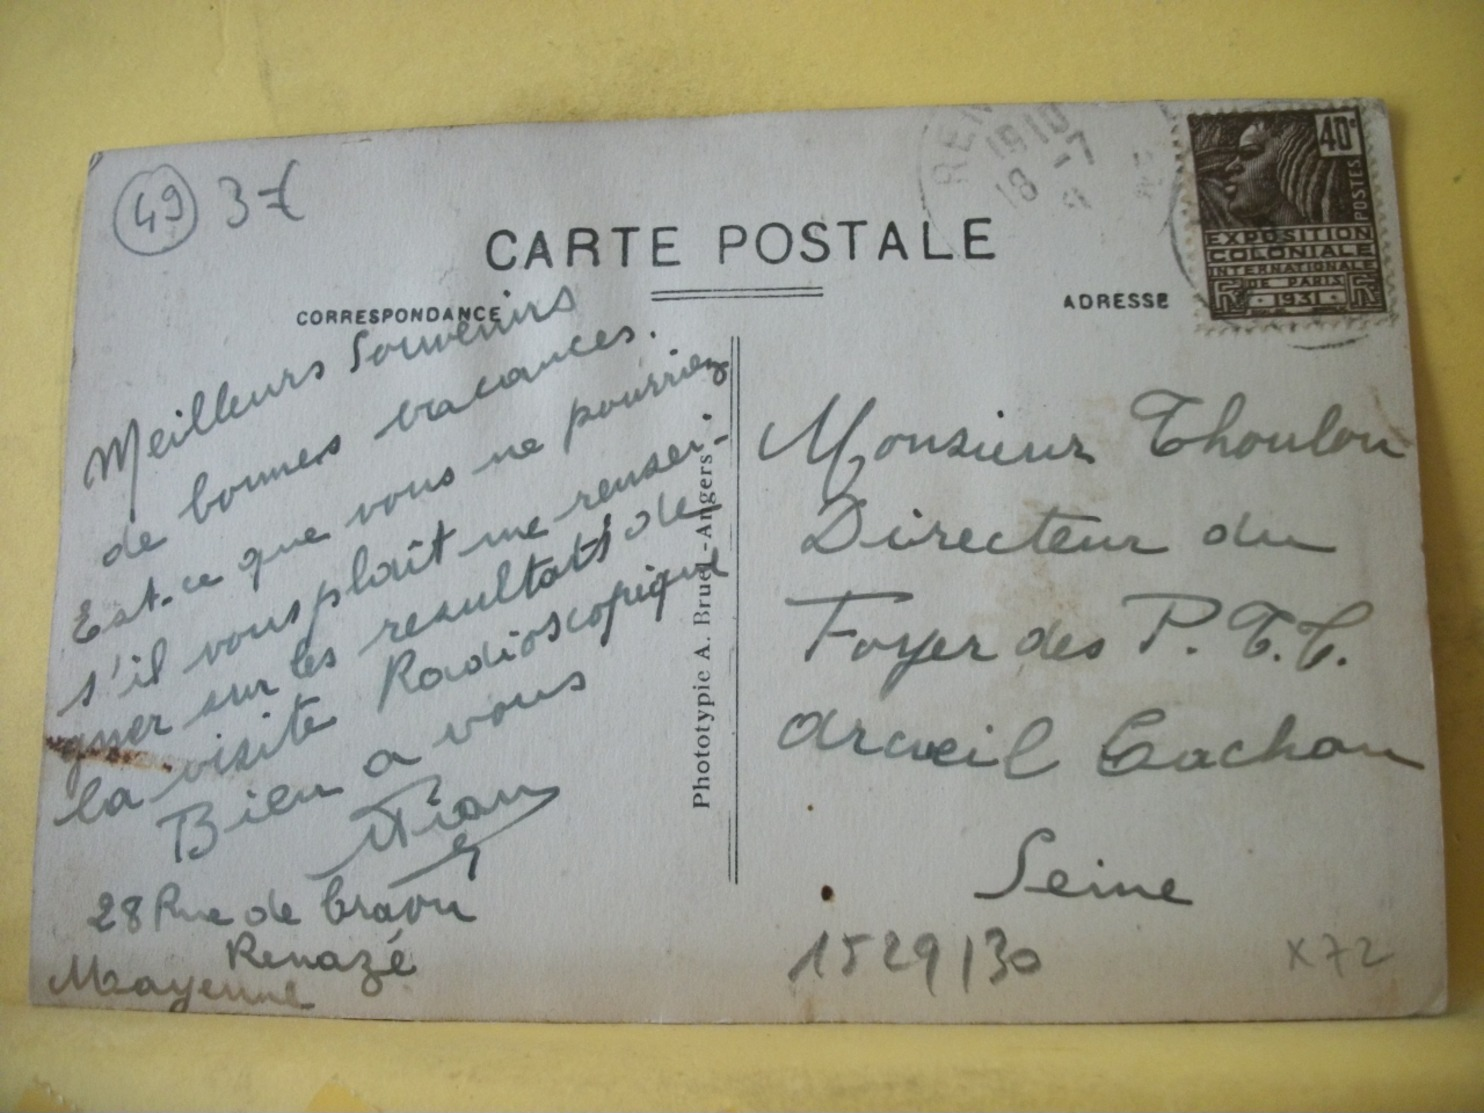 49 3€
CARTE POSTALE
CORRESPONDANCE
ADRESSE
REN
1910
18 -7
40c
POSTES
EXPOSITION
COLONIALE
INTERNATIONALE
DE PARIS
1931
Meilleurs Souvenirs
de bonnes vacances.
Est-ce que vous ne pourriez
s'il vous plaît me rensei-
gner sur les resultats de
la visite Radioscopique
Bien a vous
28 Rue de
Renazé
Mayenne
Phototypie A. Bruel-Angers
Monsieur Thoulon
Directeur du
Foyer des P.T.T.
Arcueil Cachan
Seine
1529130
X72